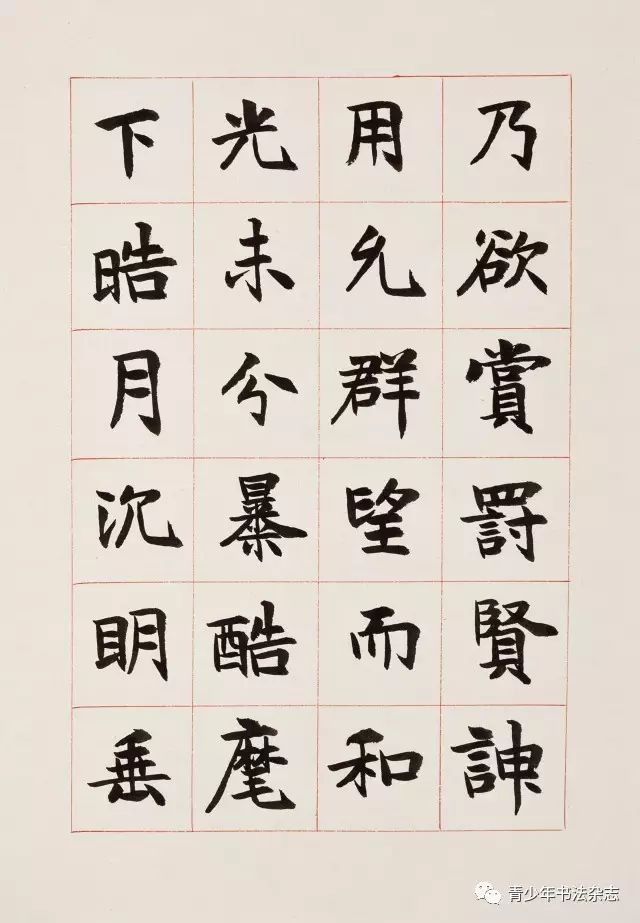 乃欲賞罰賢訷
用允群望而和
光未分暴酷麾
下晧月沉明垂
青少年书法杂志